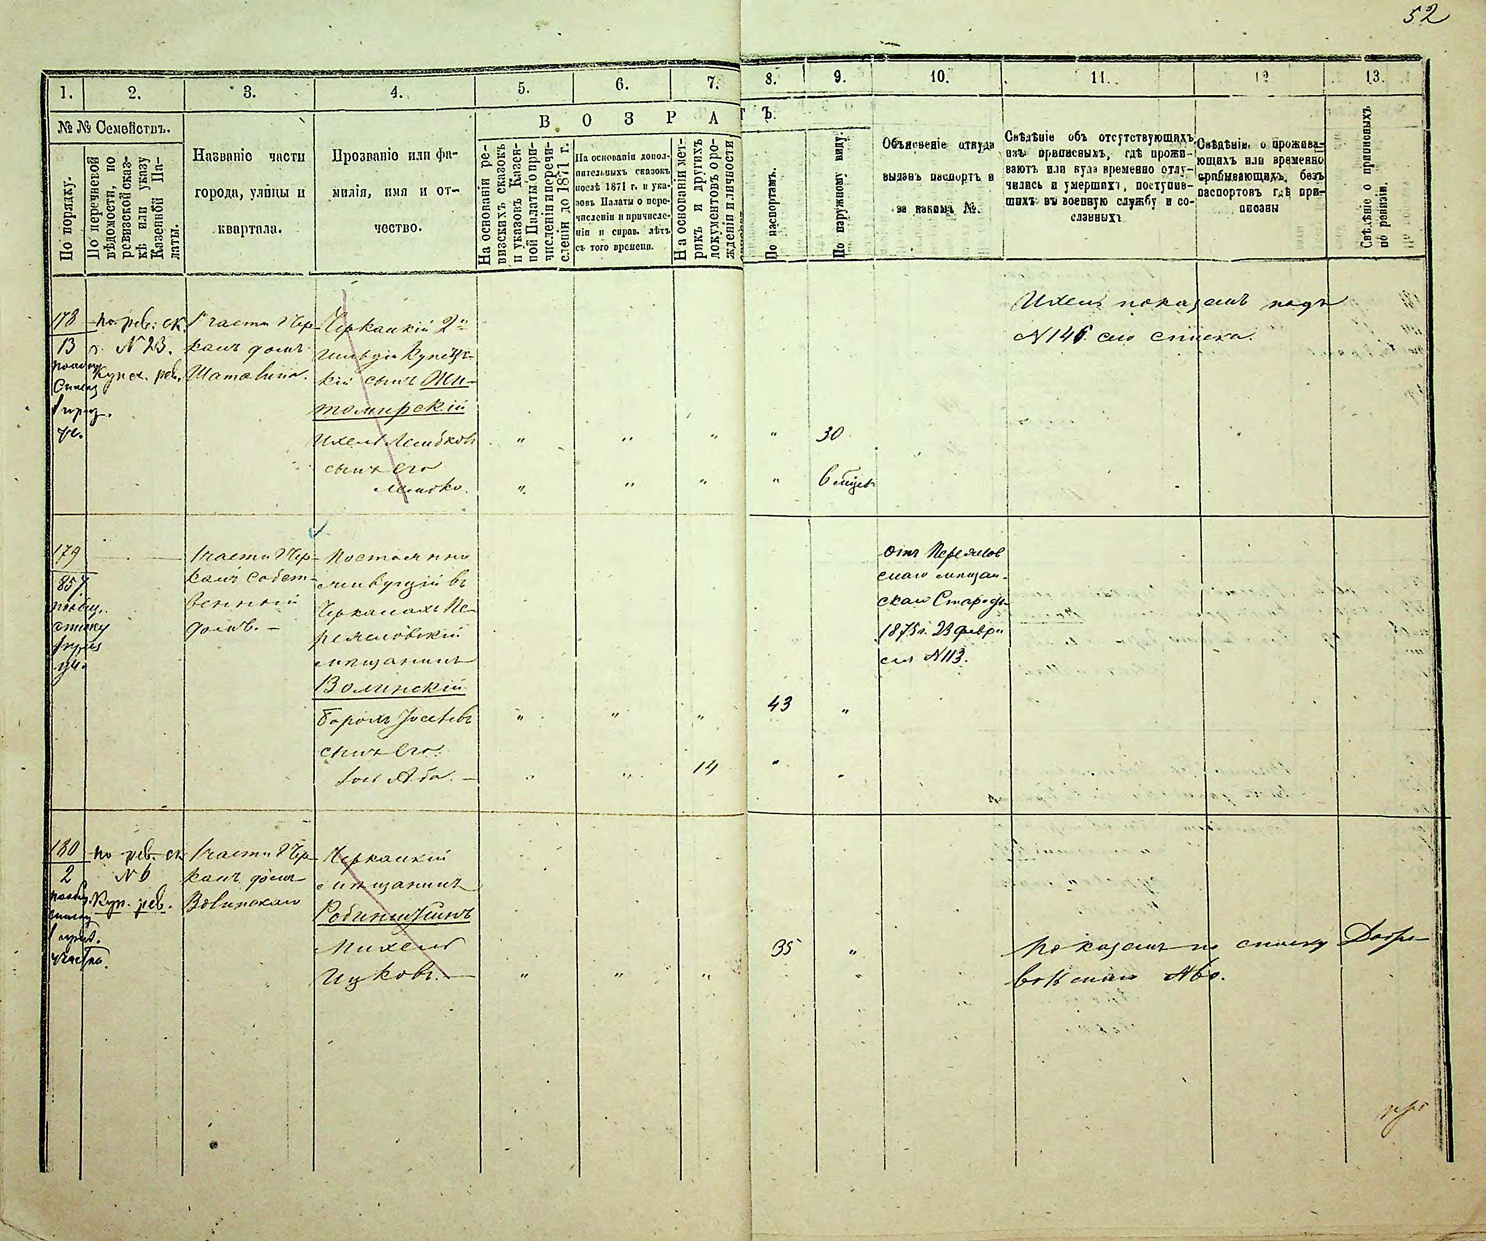 52
1. 2. 3. 4. 5. 6. 7. 8. 9. 10. 11. 12 13.
№ № Семействъ.
По порядку.
По перечневой вѣдомости, по ревизской сказкѣ или указу Казенной Палаты.
Названіе части
города, улицы и
квартала.
Прозваніе или фа-
милія, имя и от-
чество.
ВОЗРАСТЪ.
На основаніи ре-
визскихъ сказокъ
и указовъ Казен-
ной Палаты о при-
численіи и перечи-
сленіи до 1871 г.
На основаніи допол-
нительныхъ сказокъ
послѣ 1871 г. и ука-
зовъ Палаты о пере-
численіи и причисле-
ніи и справ. лѣтъ
съ того времени.
На основаніи мет-
рикъ и другихъ
документовъ о ро-
жденіи и личности
По паспортамъ.
По наружному виду.
Объясненіе откуда
выданъ паспортъ и
за какимъ №.
Свѣдѣніе объ отсутствующихъ
изъ приписныхъ, гдѣ прожи-
ваютъ или куда временно отлу-
чились и умершихъ, поступив-
шихъ въ военную службу и со-
сланныхъ
Свѣдѣніе о прожива-
ющихъ или временно
пребывающихъ, безъ
паспортовъ гдѣ при-
писаны
Свѣдѣніе о приписныхъ
по ревизіи.
178
13
по рев. ск.
г. № 23.
Купеч. рев.
1 части г. Чер-
касъ домъ
Шатовина.
Черкаскій 2й
гильдіи Купечес-
кій сынъ Жи-
томирскій
Ихель Лейбковъ " " " " 30
сынъ его
Лейбко. " " " " 6 мцевъ
Ихель показанъ подъ
№ 146 сго списка.
179
857
1 части г. Чер-
касъ собст-
венный
домъ. —
Постоянно
живущій въ
Черкасахъ Пе-
реяславскій
мѣщанинъ
Волинскій
Борохъ Іосевъ " " " 43 "
сынъ его.
Іось Аба. — " " 14 " "
отъ Переяслов
скаго мѣщан-
скаго Старосты
1875 г. 23 февра
ля № 113.
180
2
по рев. ск
№ 6
Куп. рев.
1 части г. Чер-
касъ домъ
Волинскаго
Черкаскій
мѣщанинъ
Робинишкинъ
Михель 35 "
Ицковъ. — " " "
Показанъ по списку Добро-
вольскаго № 60.